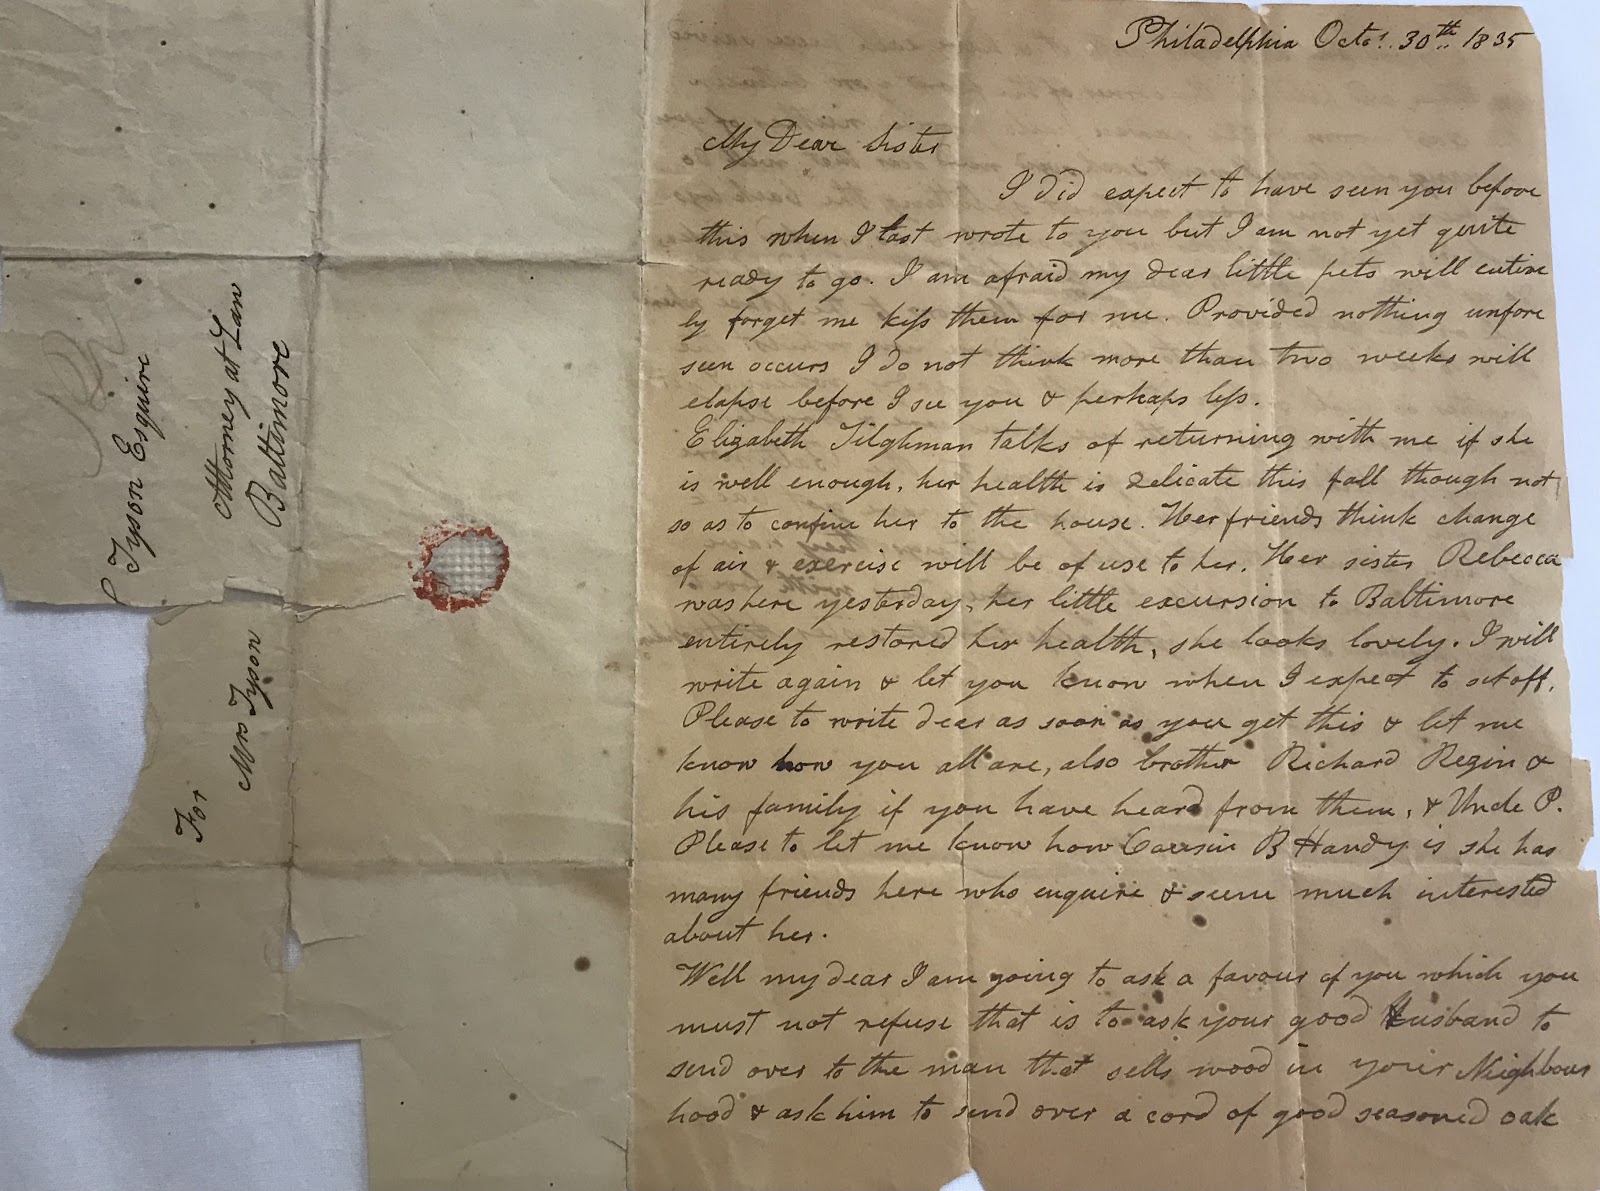 Tyson Esquire
Attorney at Law
Baltimore
For
Mrs Tyson
Philadelphia Octr. 30th 1835
My Dear Sister
I did expect to have seen you before
this when I last wrote to you but I am not yet quite
ready to go. I am afraid my dear little pets will entire
ly forget me kiss them for me. Provided nothing unfore
seen occurs I do not think more than two weeks will
elapse before I see you & perhaps less.
Elizabeth Tilghman talks of returning with me if she
is well enough, her health is delicate this fall though not
so as to confine her to the house. Her friends think change
of air & exercise will be of use to her. Her sister Rebecca
was here yesterday, her little excursion to Baltimore
entirely restored her health, she looks lovely. I will
write again & let you know when I expect to set off.
Please to write dear as soon as you get this & let me
know how you all are, also brother Richard Regin &
his family if you have heard from them, & Uncle P.
Please to let me know how Cousin B Handy is she has
many friends here who enquire & seem much interested
about her.
Well my dear I am going to ask a favour of you which you
must not refuse that is to ask your good Husband to
send over to the man that sells wood in your Neighbour
hood & ask him to send over a cord of good seasoned oak